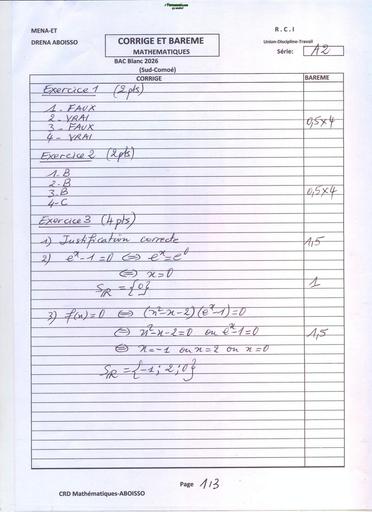 MENA-ET
DRENA ABOISSO
CORRIGE ET BAREME
MATHEMATIQUES
BAC Blanc 2026
(Sud-Comoé)
R.C.I
Union-Discipline-Travail
Série: A2
CORRIGE
BAREME
Exercice 1 (2pts)
1 - FAUX
2 - VRAI
3 - FAUX
4 - VRAI
0,5x4
Exercice 2 (2pts)
1-B
2-B
3-B
4-C
0,5x4
Exercice 3 (4pts)
1) Justification correcte
1,5
2) eˣ-1=0 ⇔ eˣ=e⁰
⇔ x=0
S_ℝ = {0}
1
3) f(x)=0 ⇔ (x²-x-2)(eˣ-1)=0
⇔ x²-x-2=0 ou eˣ-1=0
1,5
⇔ x=-1 ou x=2 ou x=0
S_ℝ = {-1; 2; 0}
Page 1/3
CRD Mathématiques-ABOISSO